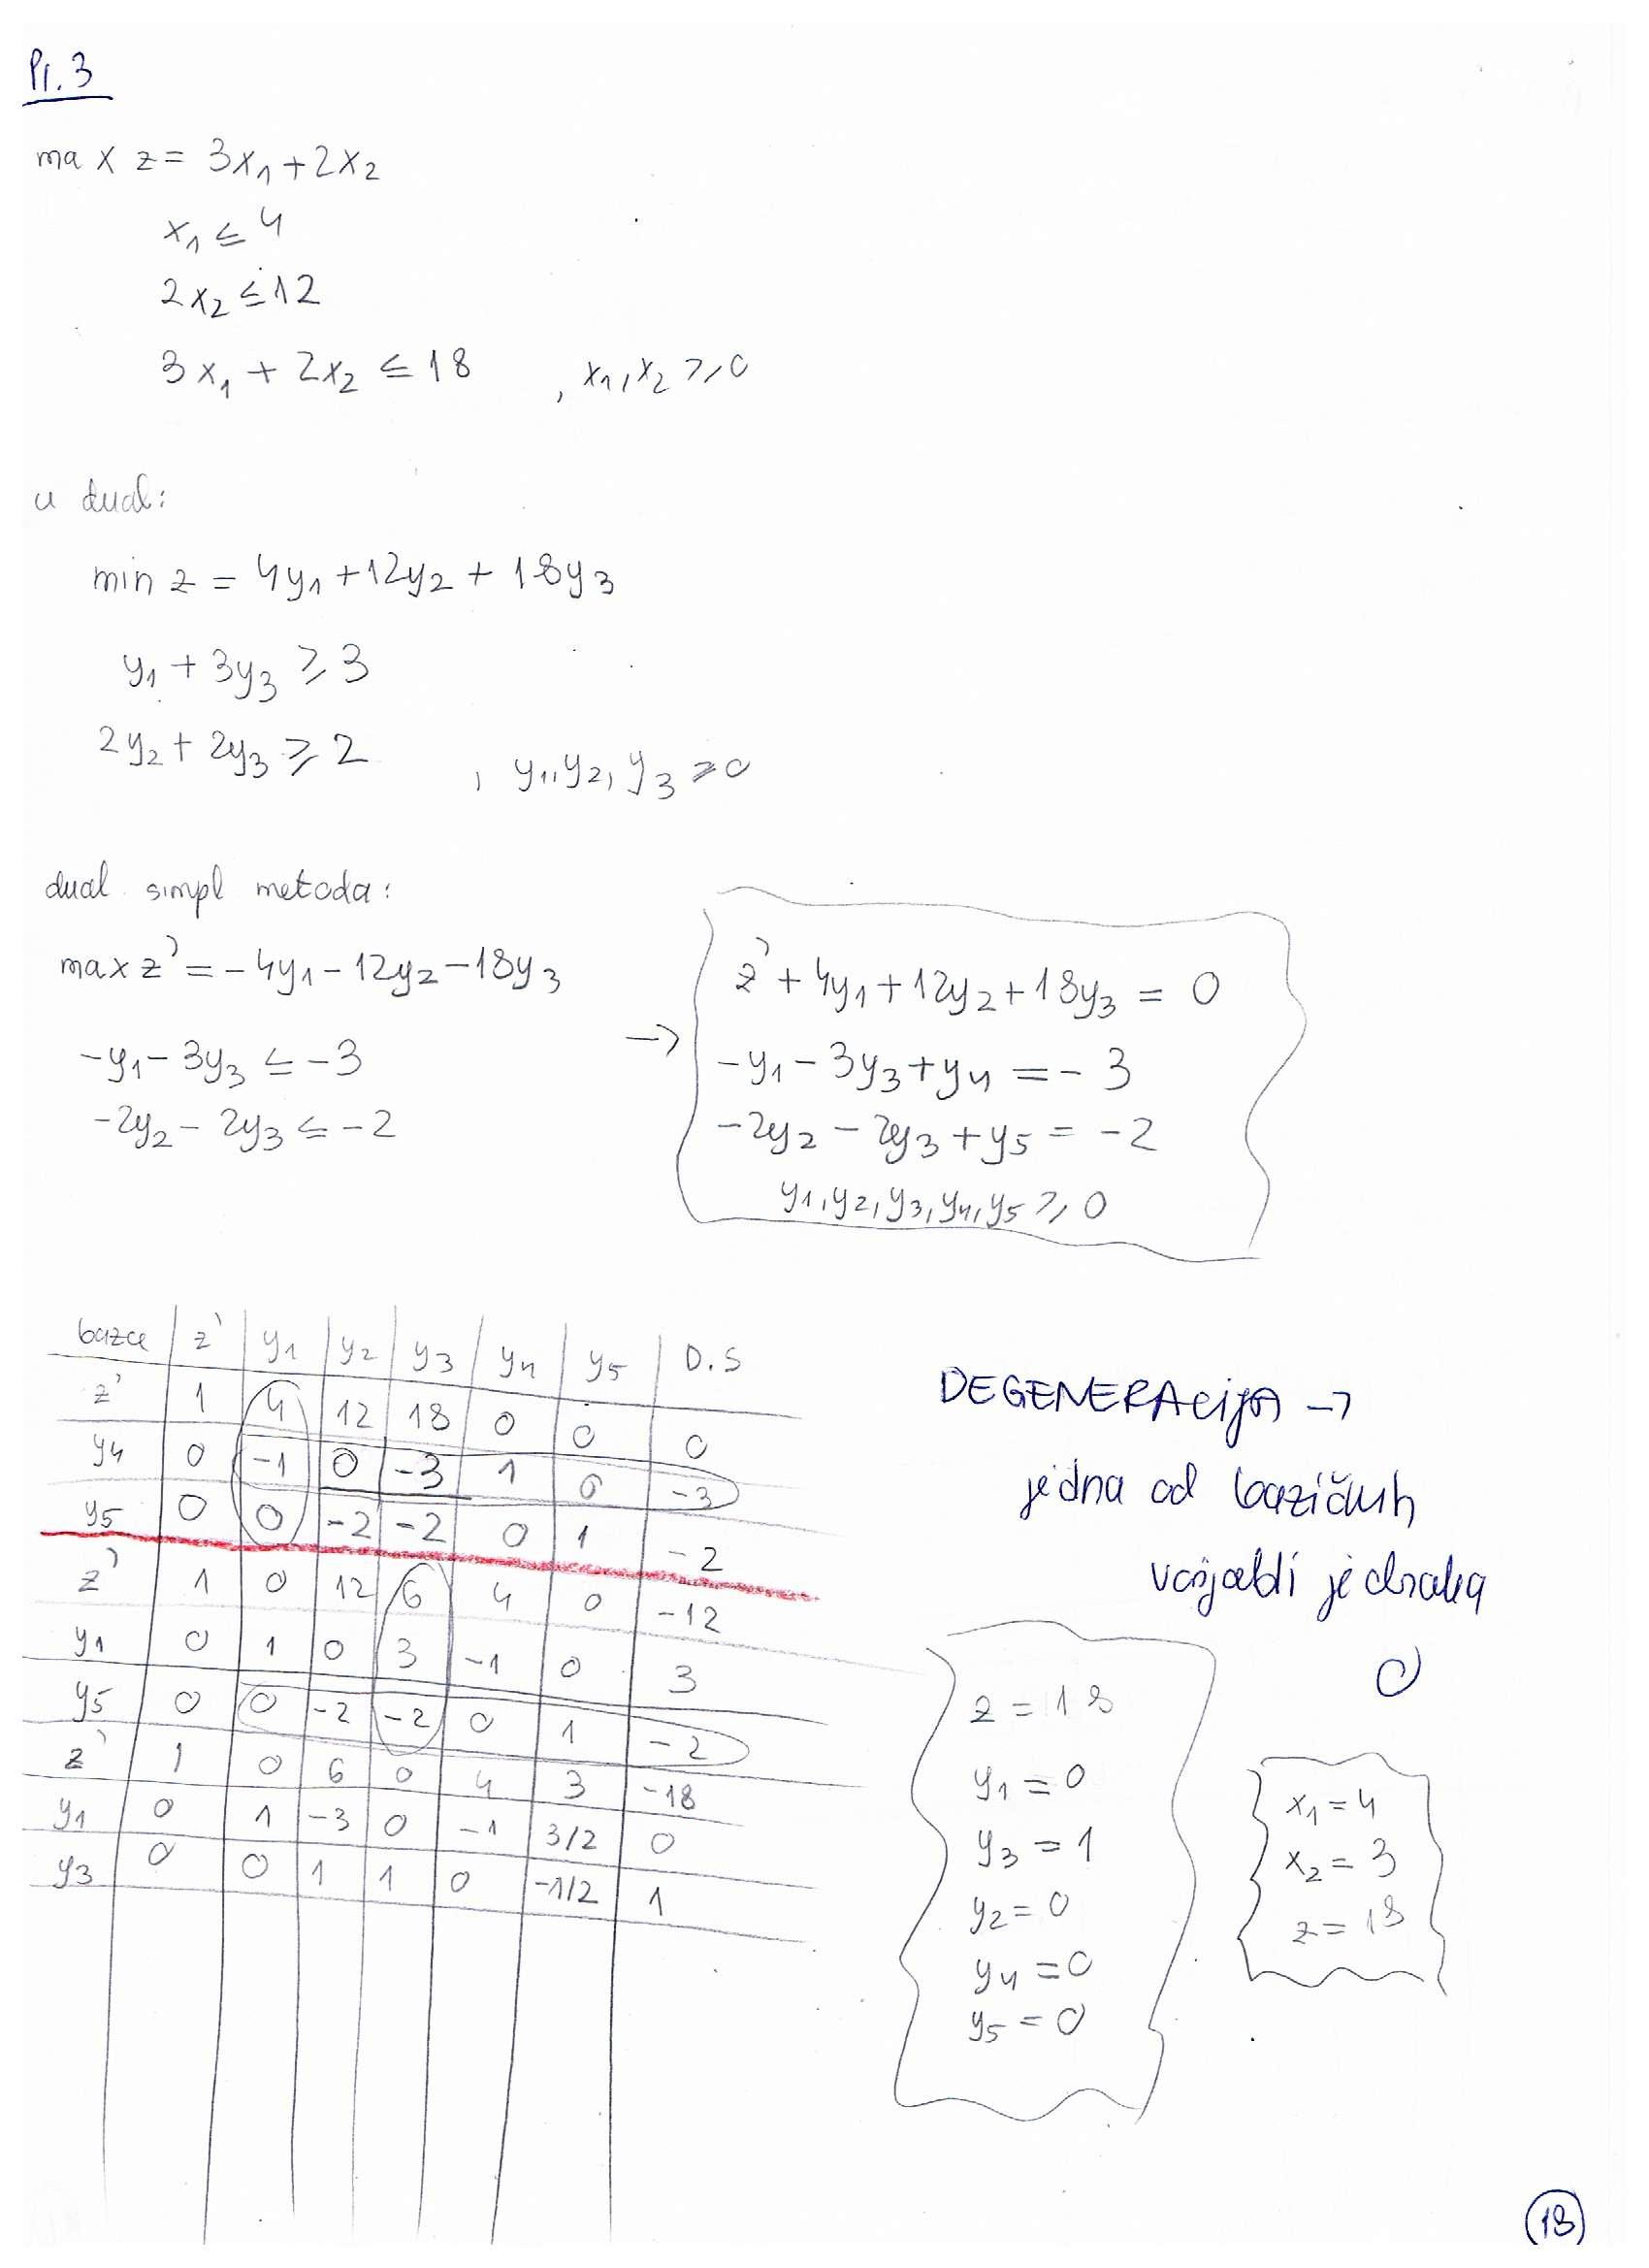 Pr. 3
max z = 3x₁ + 2x₂
x₁ ≤ 4
2x₂ ≤ 12
3x₁ + 2x₂ ≤ 18 , x₁, x₂ ≥ 0
u dual:
min z = 4y₁ + 12y₂ + 18y₃
y₁ + 3y₃ ≥ 3
2y₂ + 2y₃ ≥ 2 , y₁, y₂, y₃ ≥ 0
dual simpl metoda:
max z' = -4y₁ - 12y₂ - 18y₃
-y₁ - 3y₃ ≤ -3
-2y₂ - 2y₃ ≤ -2
→
z' + 4y₁ + 12y₂ + 18y₃ = 0
-y₁ - 3y₃ + y₄ = -3
-2y₂ - 2y₃ + y₅ = -2
y₁, y₂, y₃, y₄, y₅ ≥ 0
baza z' y₁ y₂ y₃ y₄ y₅ D.S
z' 1 4 12 18 0 0 0
y₄ 0 -1 0 -3 1 0 -3
y₅ 0 0 -2 -2 0 1 -2
z' 1 0 12 6 4 0 -12
y₁ 0 1 0 3 -1 0 3
y₅ 0 0 -2 -2 0 1 -2
z' 1 0 6 0 4 3 -18
y₁ 0 1 -3 0 -1 3/2 0
y₃ 0 0 1 1 0 -1/2 1
DEGENERACija →
jedna od bazičnih
varijabli jednaka
0
z = 18
y₁ = 0
y₃ = 1
y₂ = 0
y₄ = 0
y₅ = 0
x₁ = 4
x₂ = 3
z = 18
18